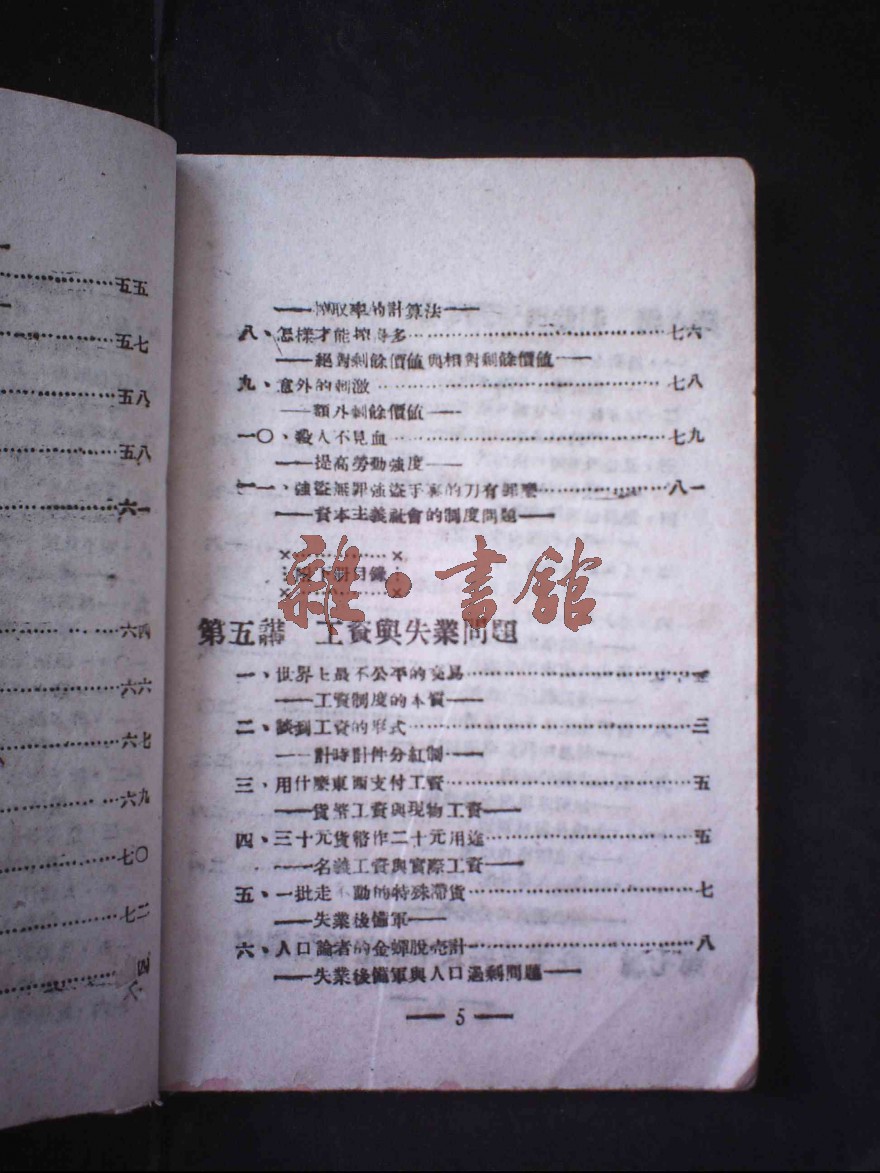 五五
五七
五八
五八
六一
六四
六六
六七
六九
七〇
七二
——榨取率的計算法——
八、怎樣才能榨得多……七六
——絕對剩餘價值與相對剩餘價值——
九、意外的刺激……七八
——額外剩餘價值——
一〇、殺人不見血……七九
——提高勞動強度——
一一、強盜無罪強盜手裏的刀有罪麼……八一
——資本主義社會的制度問題——
×……×
下册目錄
×……×
雜·書館
第五講 工資與失業問題
一、世界上最不公平的交易……一
——工資制度的本質——
二、談到工資的形式……三
——計時計件分紅制——
三、用什麼東西支付工資……五
——貨幣工資與現物工資——
四、三十元貨幣作二十元用途……五
——名義工資與實際工資——
五、一批走 動的特殊滯貨……七
——失業後備軍——
六、人口論者的金蟬脫壳計……八
——失業後備軍與人口過剩問題——
— 5 —